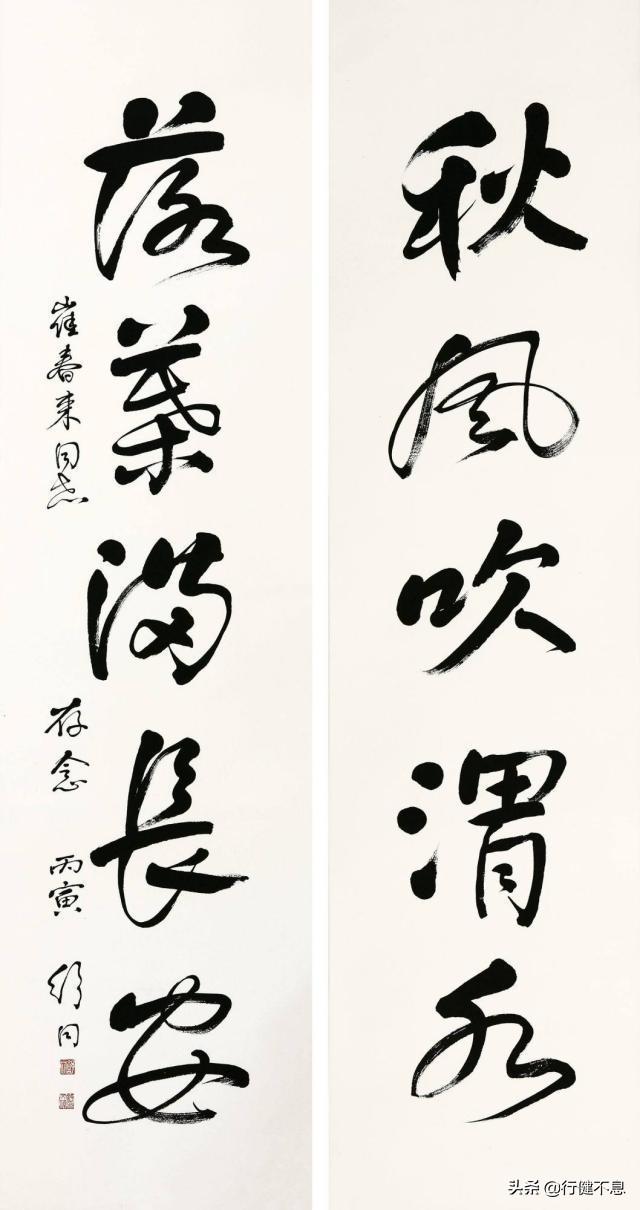 秋風吹渭水
落葉滿長安
崔春來同志
存念 丙寅 舒同
头条 @行健不息